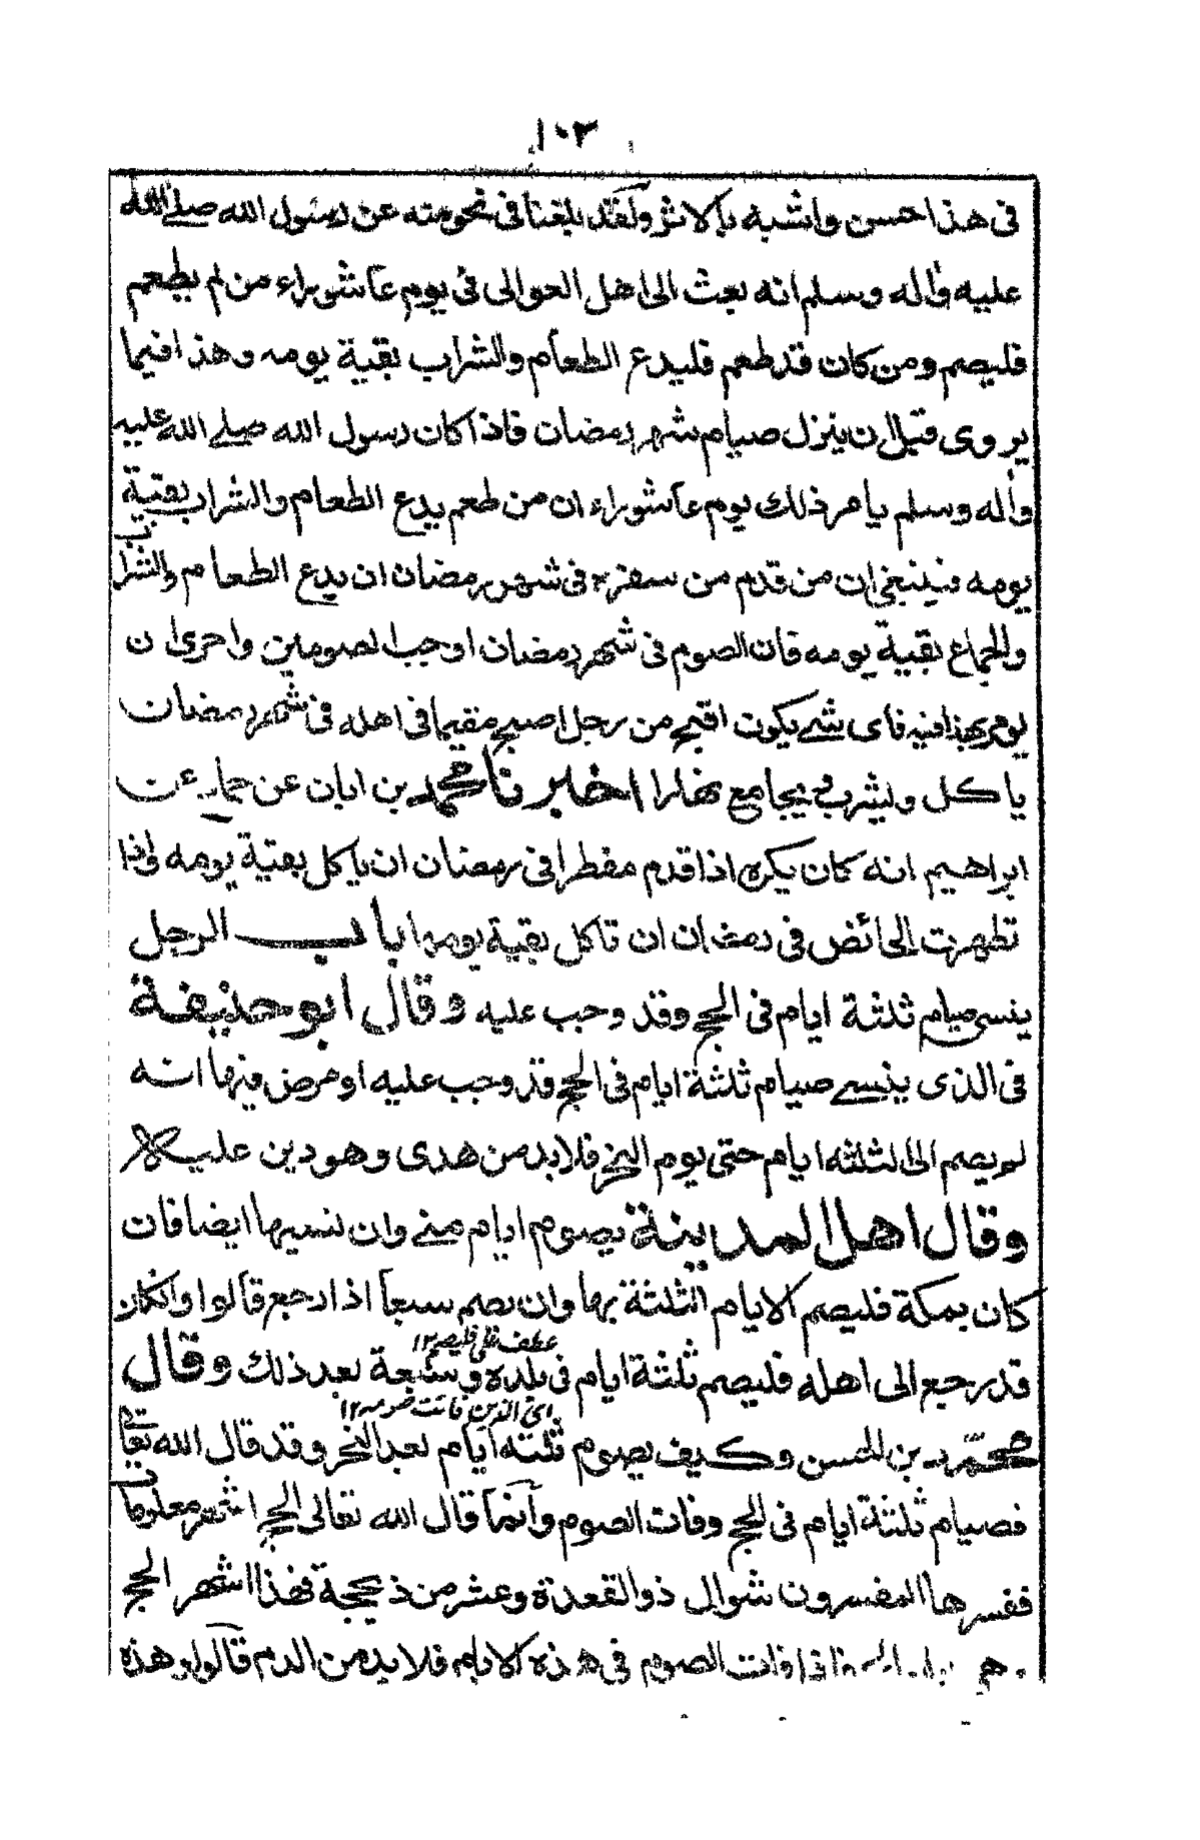 ١٠٣
فى هذا احسن واشبه بالاثر ولقد بلغنا فى نحو منه عن رسول الله صلے الله
عليه واله وسلم انه بعث الى اهل العوالى فى يوم عاشوراء من لم يطعم
فليصم ومن كان قد طعم فليدع الطعام والشراب بقية يومه وهذا فيما
يروى قبل ان ينزل صيام شهر رمضان فاذا كان رسول الله صلے الله عليه
واله وسلم يامر ذلك يوم عاشوراء ان من طعم يدع الطعام والشراب بقية
يومه فينبغى ان من قدم من سفره فى شهر رمضان ان يدع الطعام والشراب
والجماع بقية يومه فان الصوم فى شهر رمضان اوجب الصومين واحرى ان
يومر بهذا فيه فاى شے يكون اقبح من رجل اصبح مقيما فى اهله فى شهر رمضان
ياكل ويشرب ويجامع نهارا اخبرنا محمد بن ابان عن حماد عن
ابراهيم انه كان يكره اذا قدم مفطرا فى رمضان ان ياكل بقية يومه واذا
تطهرت الحائض فى رمضان ان تاكل بقية يومها باب الرجل
ينسى صيام ثلثة ايام فى الحج وقد وجب عليه وقال ابو حنيفة
فى الذى ينسے صيام ثلثة ايام فى الحج قد وجب عليه او مرض فيها انه
لو يصم الى الثلثه ايام حتى يوم النحر فلابد من هدى وهو دين عليه
وقال اهل المدينة يصوم ايام منے وان نسيها ايضا فان
كان بمكة فليصم الايام الثلثة بها وان يصم سبعا اذا رجع قالوا وانكان
عطف على فليصم ١٢
قد رجع الى اهله فليصم ثلثة ايام فى بلده وسبعة بعد ذلك وقال
اى الذين فاتت صومه ١٢
محمد بن الحسن وكيف يصوم ثلثه ايام بعد النحر وقد قال الله تعالى
فصيام ثلثة ايام فى الحج وفات الصوم وانما قال الله تعالى الحج اشهر معلومات
ففسرها المفسرون شوال ذوالقعدة وعشر من ذيحجة فهذا اشهر الحج
فاذا فات الصوم فى هذه الايام فلابد من الدم قالوا وهذه